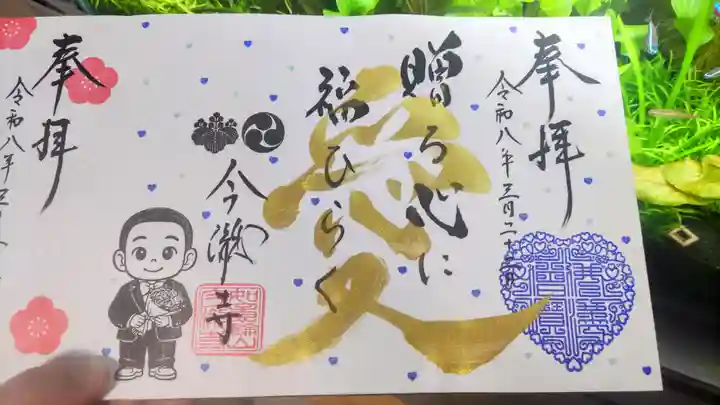 奉拝
令和八年三月二十二日
愛
贈る心に
福ひらく
今瀧寺
奉拝
令和八年三